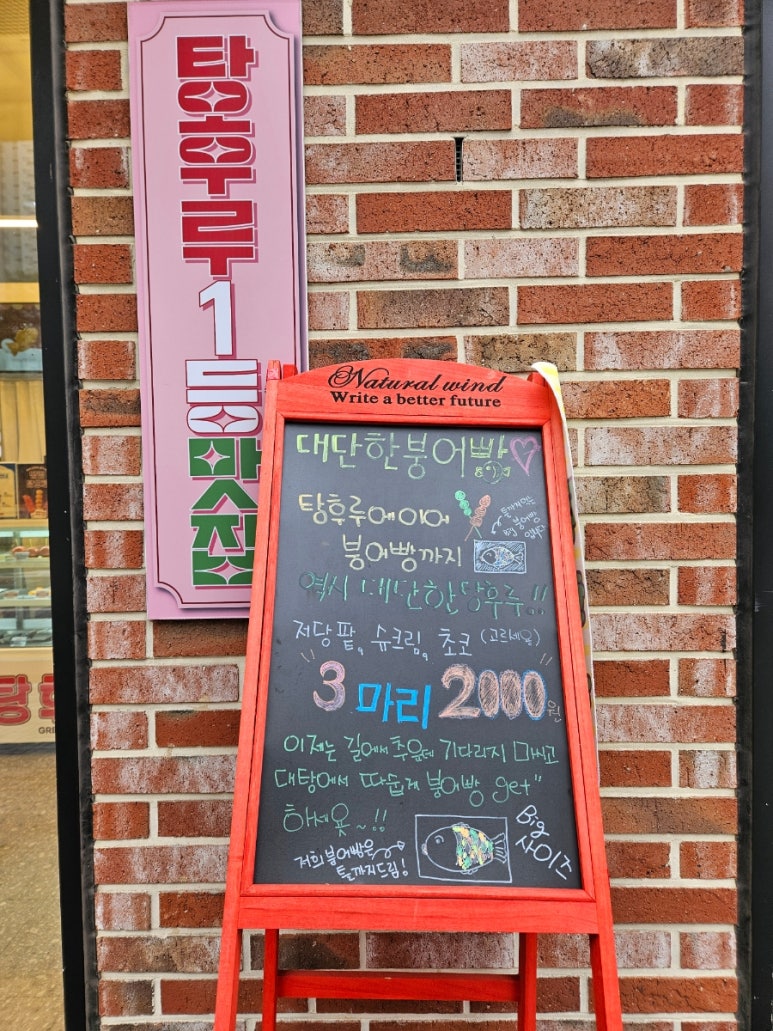 탕후루1등맛집
Natural wind
Write a better future
대단한붕어빵
탕후루에이어
붕어빵까지
역시 대단한탕후루!!
저당팥, 슈크림, 초코 (고르세요)
3마리 2000원
이제는 길에서추운데 기다리지 마시고
대탕에서 따습게 붕어빵 get"
하세욧~!!
저희붕어빵은
틀까지드림!
Big
사이즈
탕후